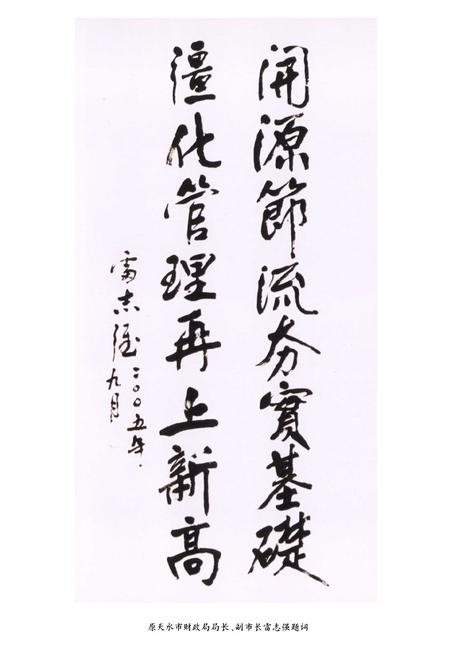 開源節流夯實基礎
彊化管理再上新高
雷志強二〇〇五年
九月
原天水市财政局局长、副市长雷志强题词